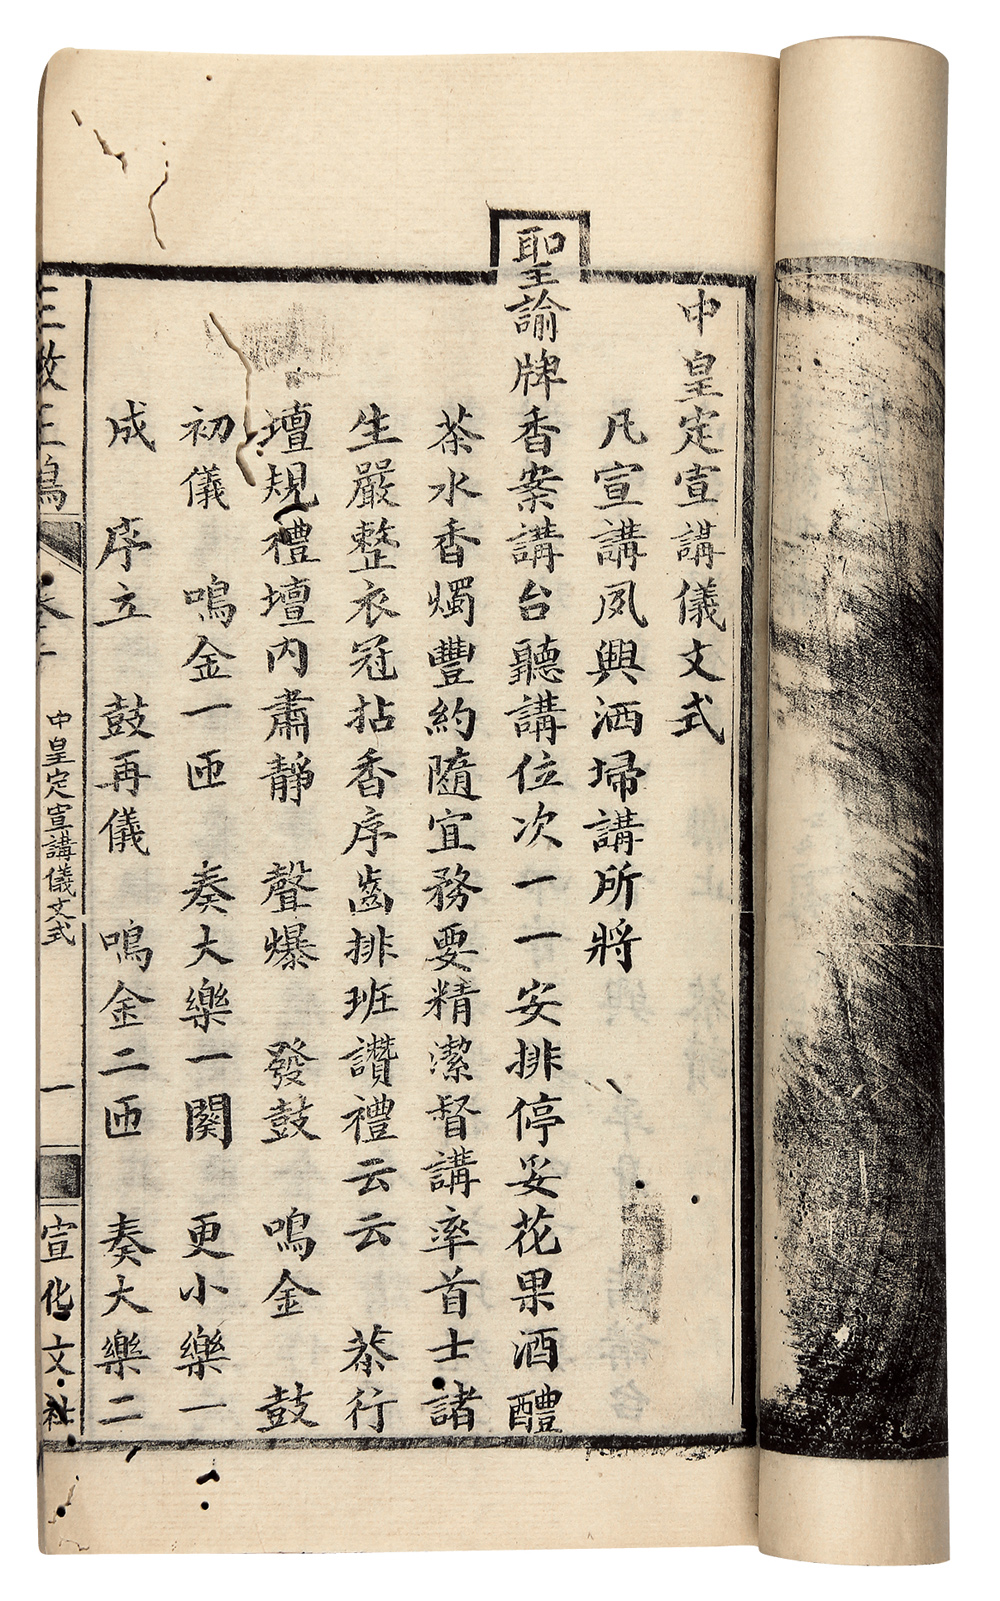 中皇定宣講儀文式
凡宣講夙興洒埽講所將
聖諭牌香案講台聽講位次一一安排停妥花果酒醴
茶水香燭豐約隨宜務要精潔督講率首士諸
生嚴整衣冠拈香序齒排班讚禮云云　恭行
壇規禮壇內肅靜　聲爆　發鼓　鳴金　鼓
初儀　鳴金一匝　奏大樂一闋　更小樂一
成　序立　鼓再儀　鳴金二匝　奏大樂二
中皇定宣講儀文式
一
宣化文社